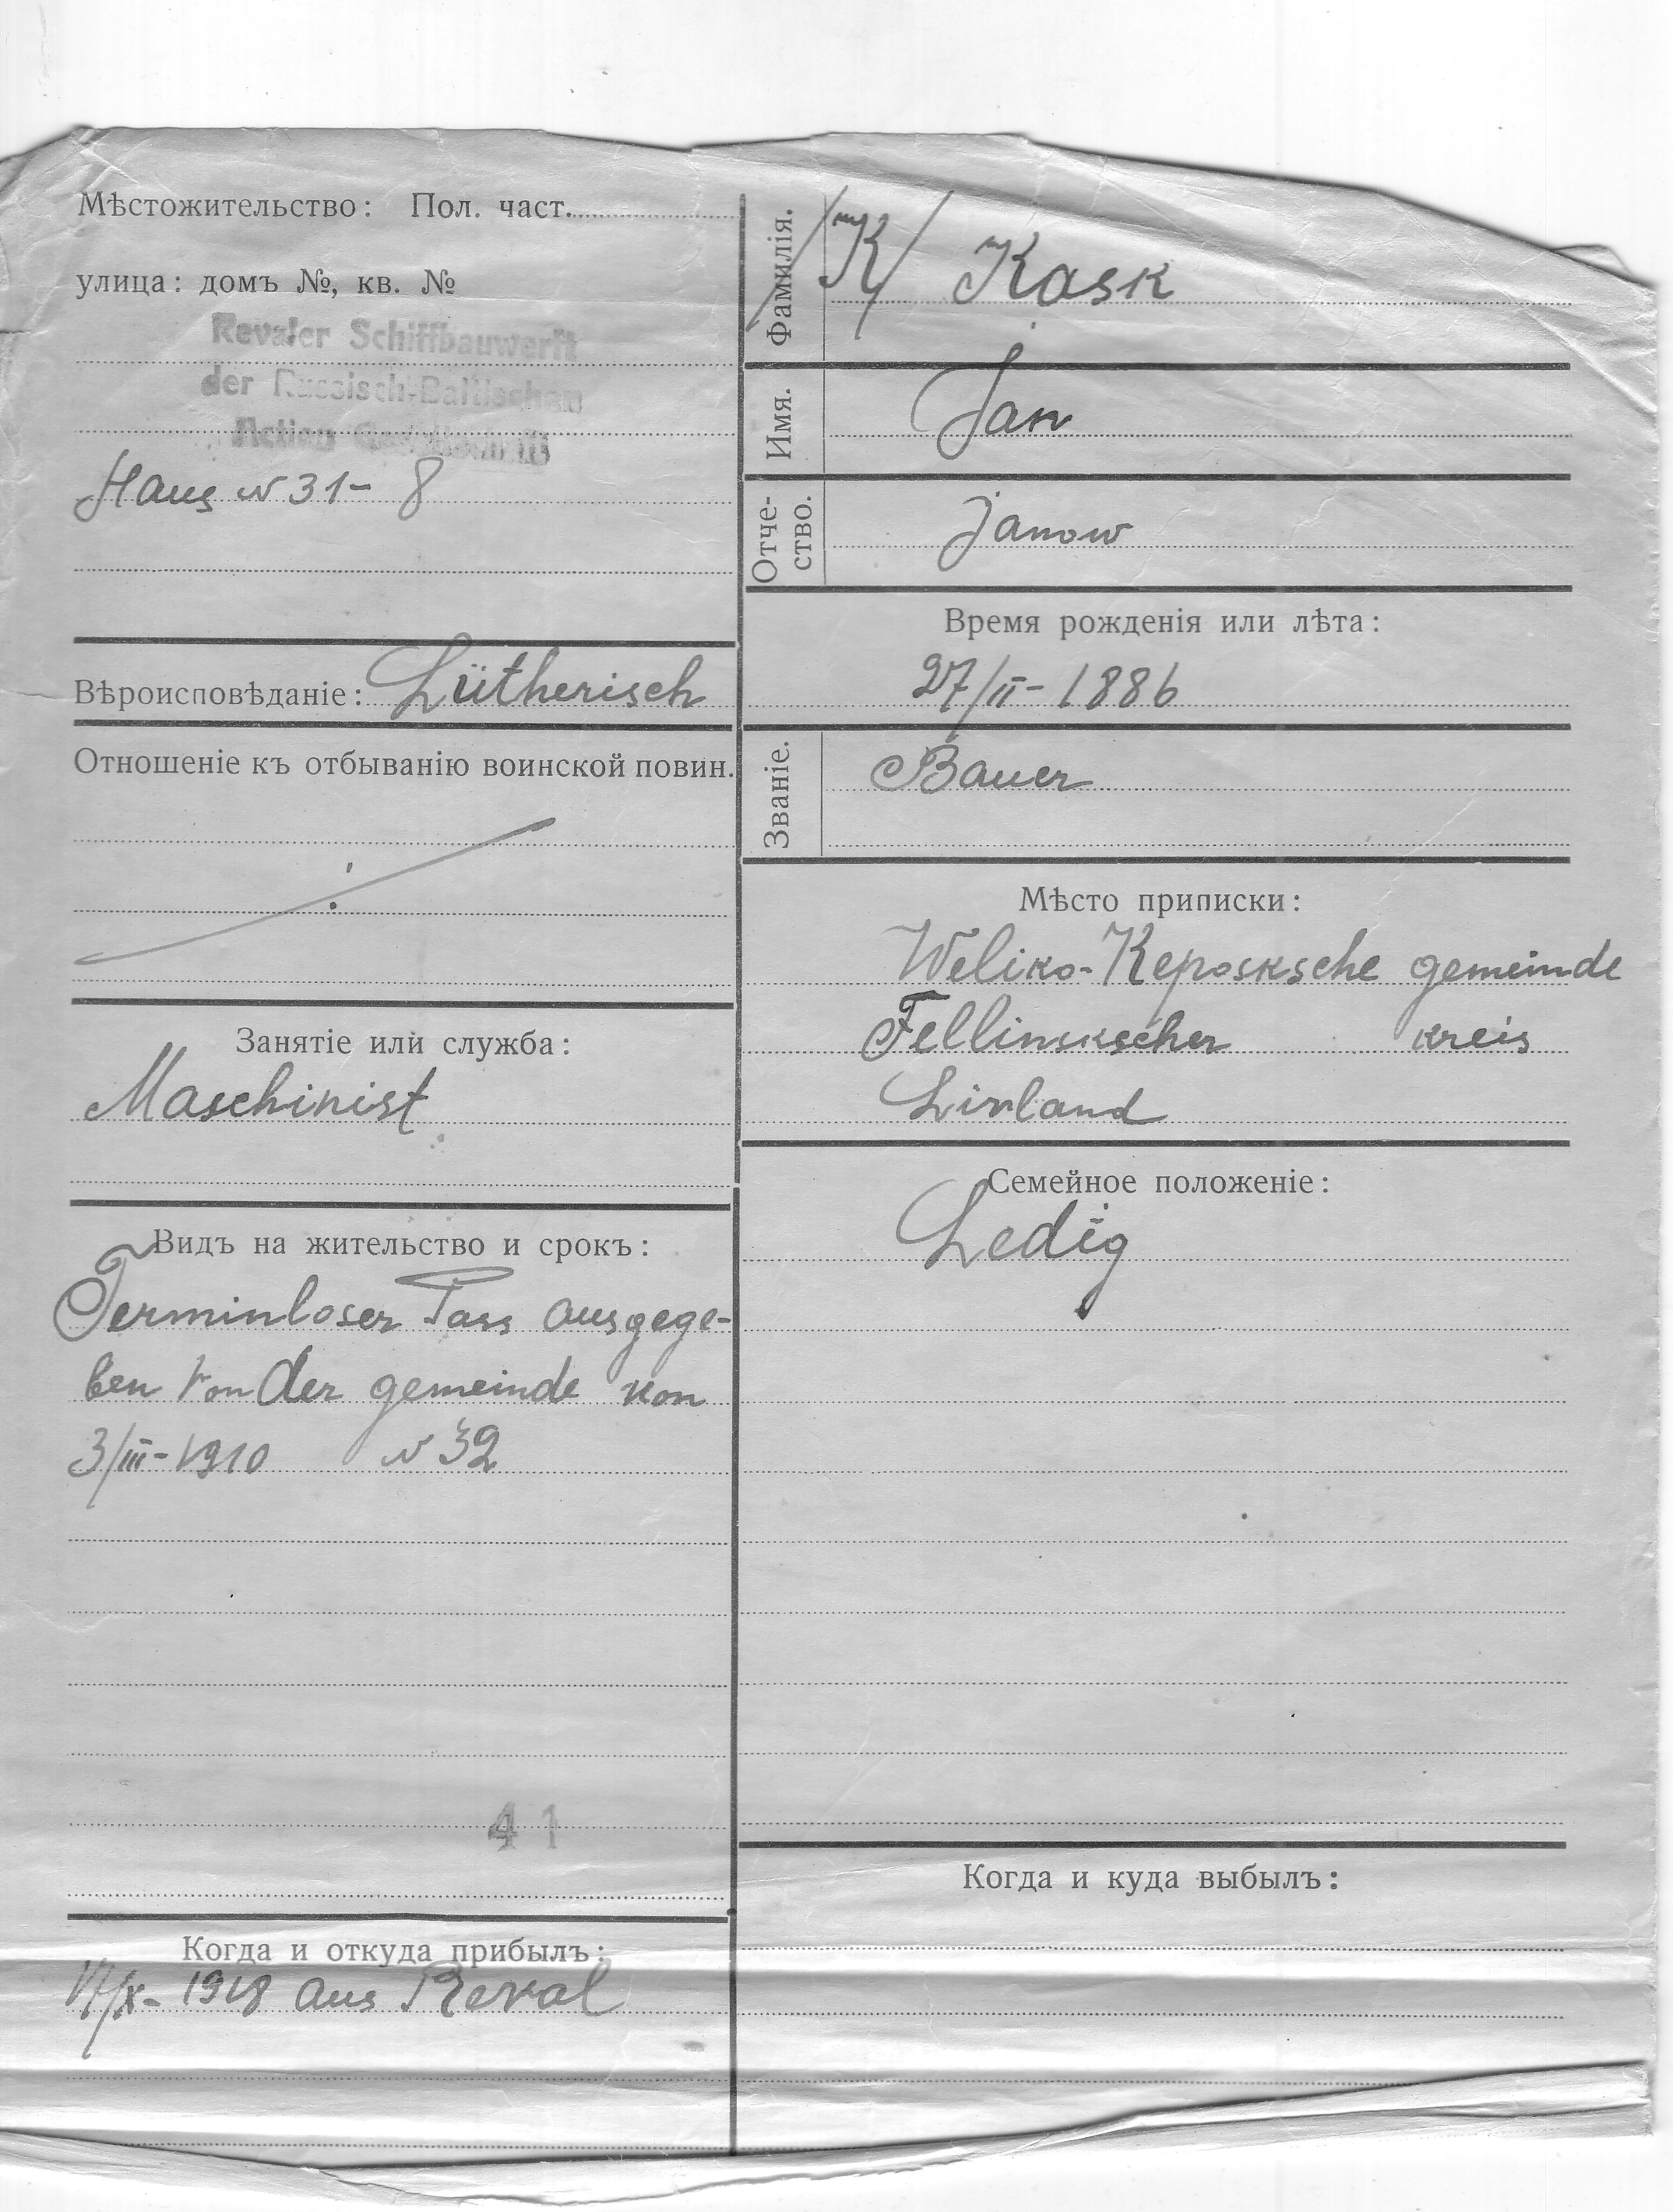 Мѣстожительство: Пол. част.
улица: домъ №, кв. №
Revaler Schiffbauwerft
der Russisch-Baltischen
Actien Gesellschaft
Haus N 31- 8
Вѣроисповѣданіе: Lütherisch
Отношеніе къ отбыванію воинской повин.
Занятіе или служба:
Maschinist
Видъ на жительство и срокъ:
Terminloser Pass ausgege-
ben von der gemeinde von
3/III-1910 N 32
41
Когда и откуда прибылъ:
/X- 1918 aus Reval
Фамилія. /K/ Kask
Имя. Jan
Отче-
ство. Janow
Время рожденія или лѣта:
27/II-1886
Званіе. Bauer
Мѣсто приписки:
Weliko-Keposksche gemeinde
Fellinskscher kreis
Livland
Семейное положеніе:
Ledig
Когда и куда выбылъ: